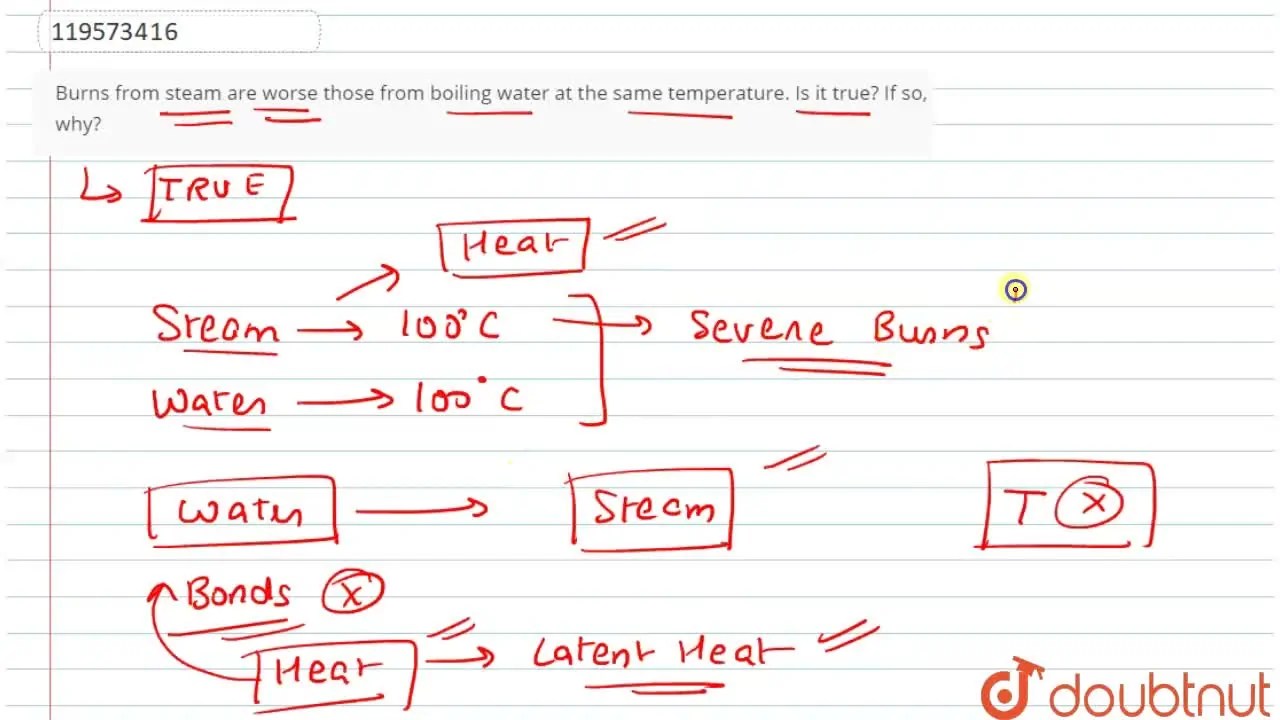 119573416
Burns from steam are worse those from boiling water at the same temperature. Is it true? If so,
why?
TRUE
Heat
Steam → 100°C → Severe Burns
Water → 100°C
Water → Steam T X
Bonds X
Heat → Latent Heat
doubtnut